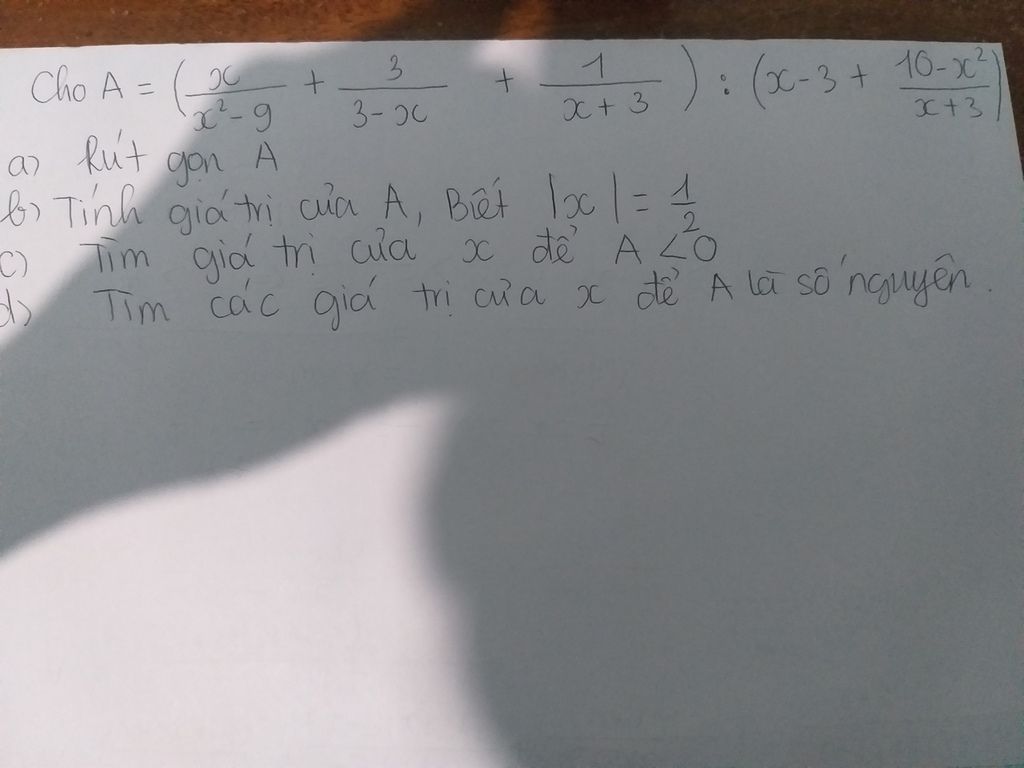 Cho A = (x/(x²-9) + 3/(3-x) + 1/(x+3)) : (x-3 + (10-x²)/(x+3))
a) Rút gọn A
b) Tính giá trị của A, Biết |x| = 1/2
c) Tìm giá trị của x để A < 0
d) Tìm các giá trị của x để A là số nguyên.